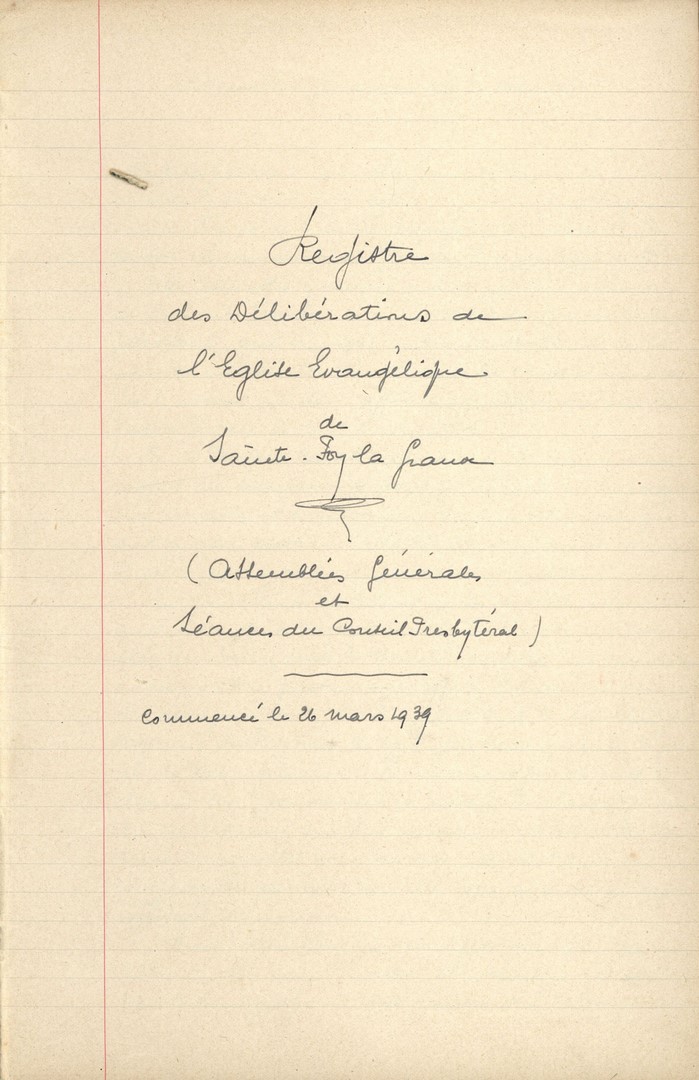 Registre
des Délibérations de
l'Eglise Evangélique
de
Sainte-Foy la Grande
(Assemblées Générales
et
Séances du Conseil Presbytéral)
commencé le 26 mars 1939